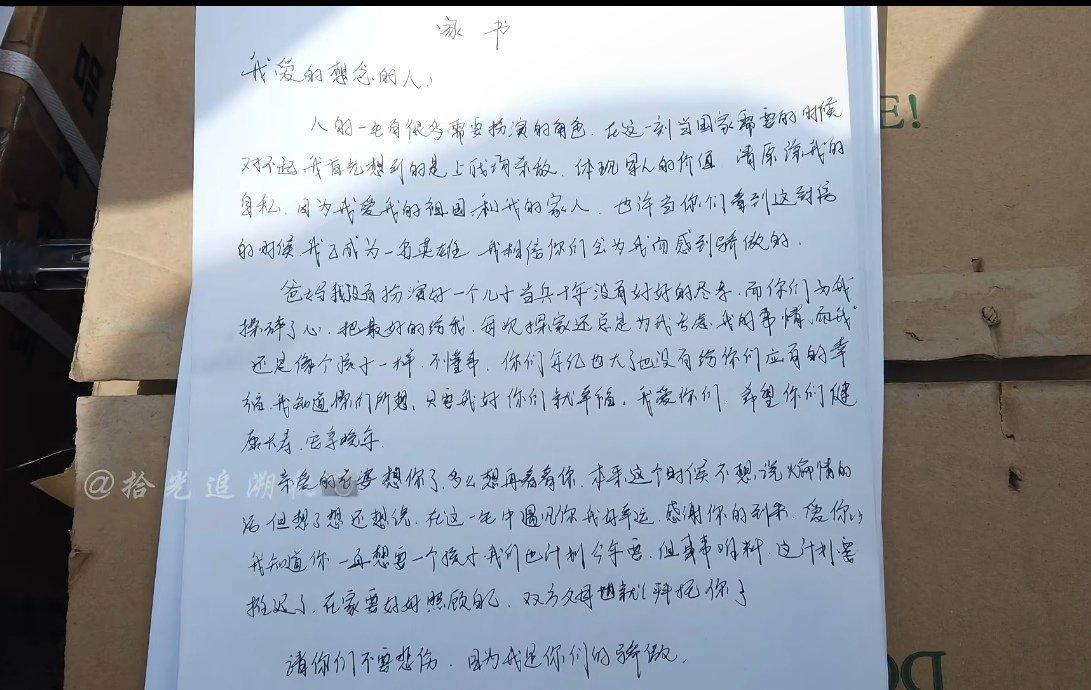 家书
我爱的想念的人：
人的一生有很多需要扮演的角色．在这一刻当国家需要的时候
对不起我首先想到的是上战场杀敌．体现军人的价值 请原谅我的
自私．因为我爱我的祖国和我的家人．也许当你们看到这封信
的时候．我已成为一名英雄 我相信你们会为我而感到骄傲的．
爸妈我没有扮演好一个儿子当兵十年没有好好的尽孝．而你们为我
操碎了心．把最好的给我．每次探家还总是为我考虑．我的事情、而我
还是像个孩子一样．不懂事．你们年纪也大了也没有给你们应有的幸
福．我知道你们所想．只要我好你们就幸福。我爱你们．希望你们健
康长寿．安享晚年．
亲爱的老婆想你了．多么想再看看你．本来这个时候不想说煽情的
话但想了想还想说．在这一生中遇见你我好幸运．感谢你的到来．爱你，
我知道你一直想要一个孩子我们也计划今年要．但事事难料．这计划要
推迟了．在家要好好照顾自己．双方父母也就拜托你了
请你们不要悲伤．因为我是你们的骄傲．
@拾光追溯
E!